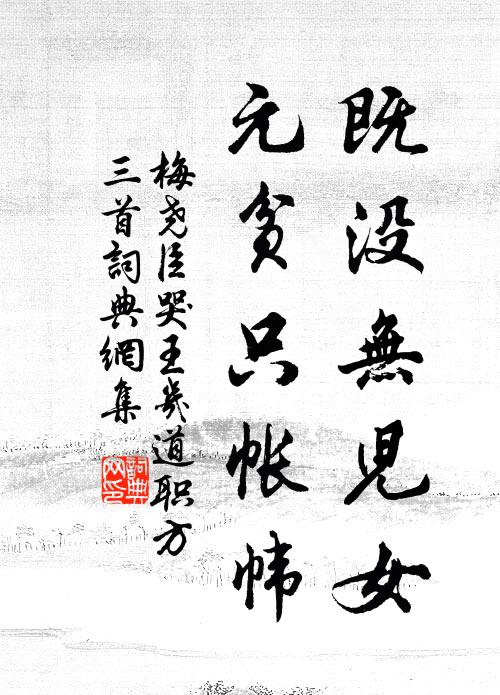 既没無児女
元贫只帐帏
梅尧臣哭王幾道职方
三首詞典網集
詞典
网印